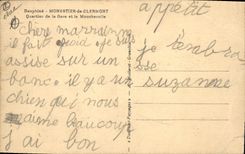 Dauphiné - MONESTIER-de-CLERMONT
Quartier de la Gare et le Montheroulle
Chère marraine
il fait froid je suis
assise sur un
banc. il y a un
chien qui nous
aime beaucoup
j'ai bon
appétit
je t'embra
sse
suzanne